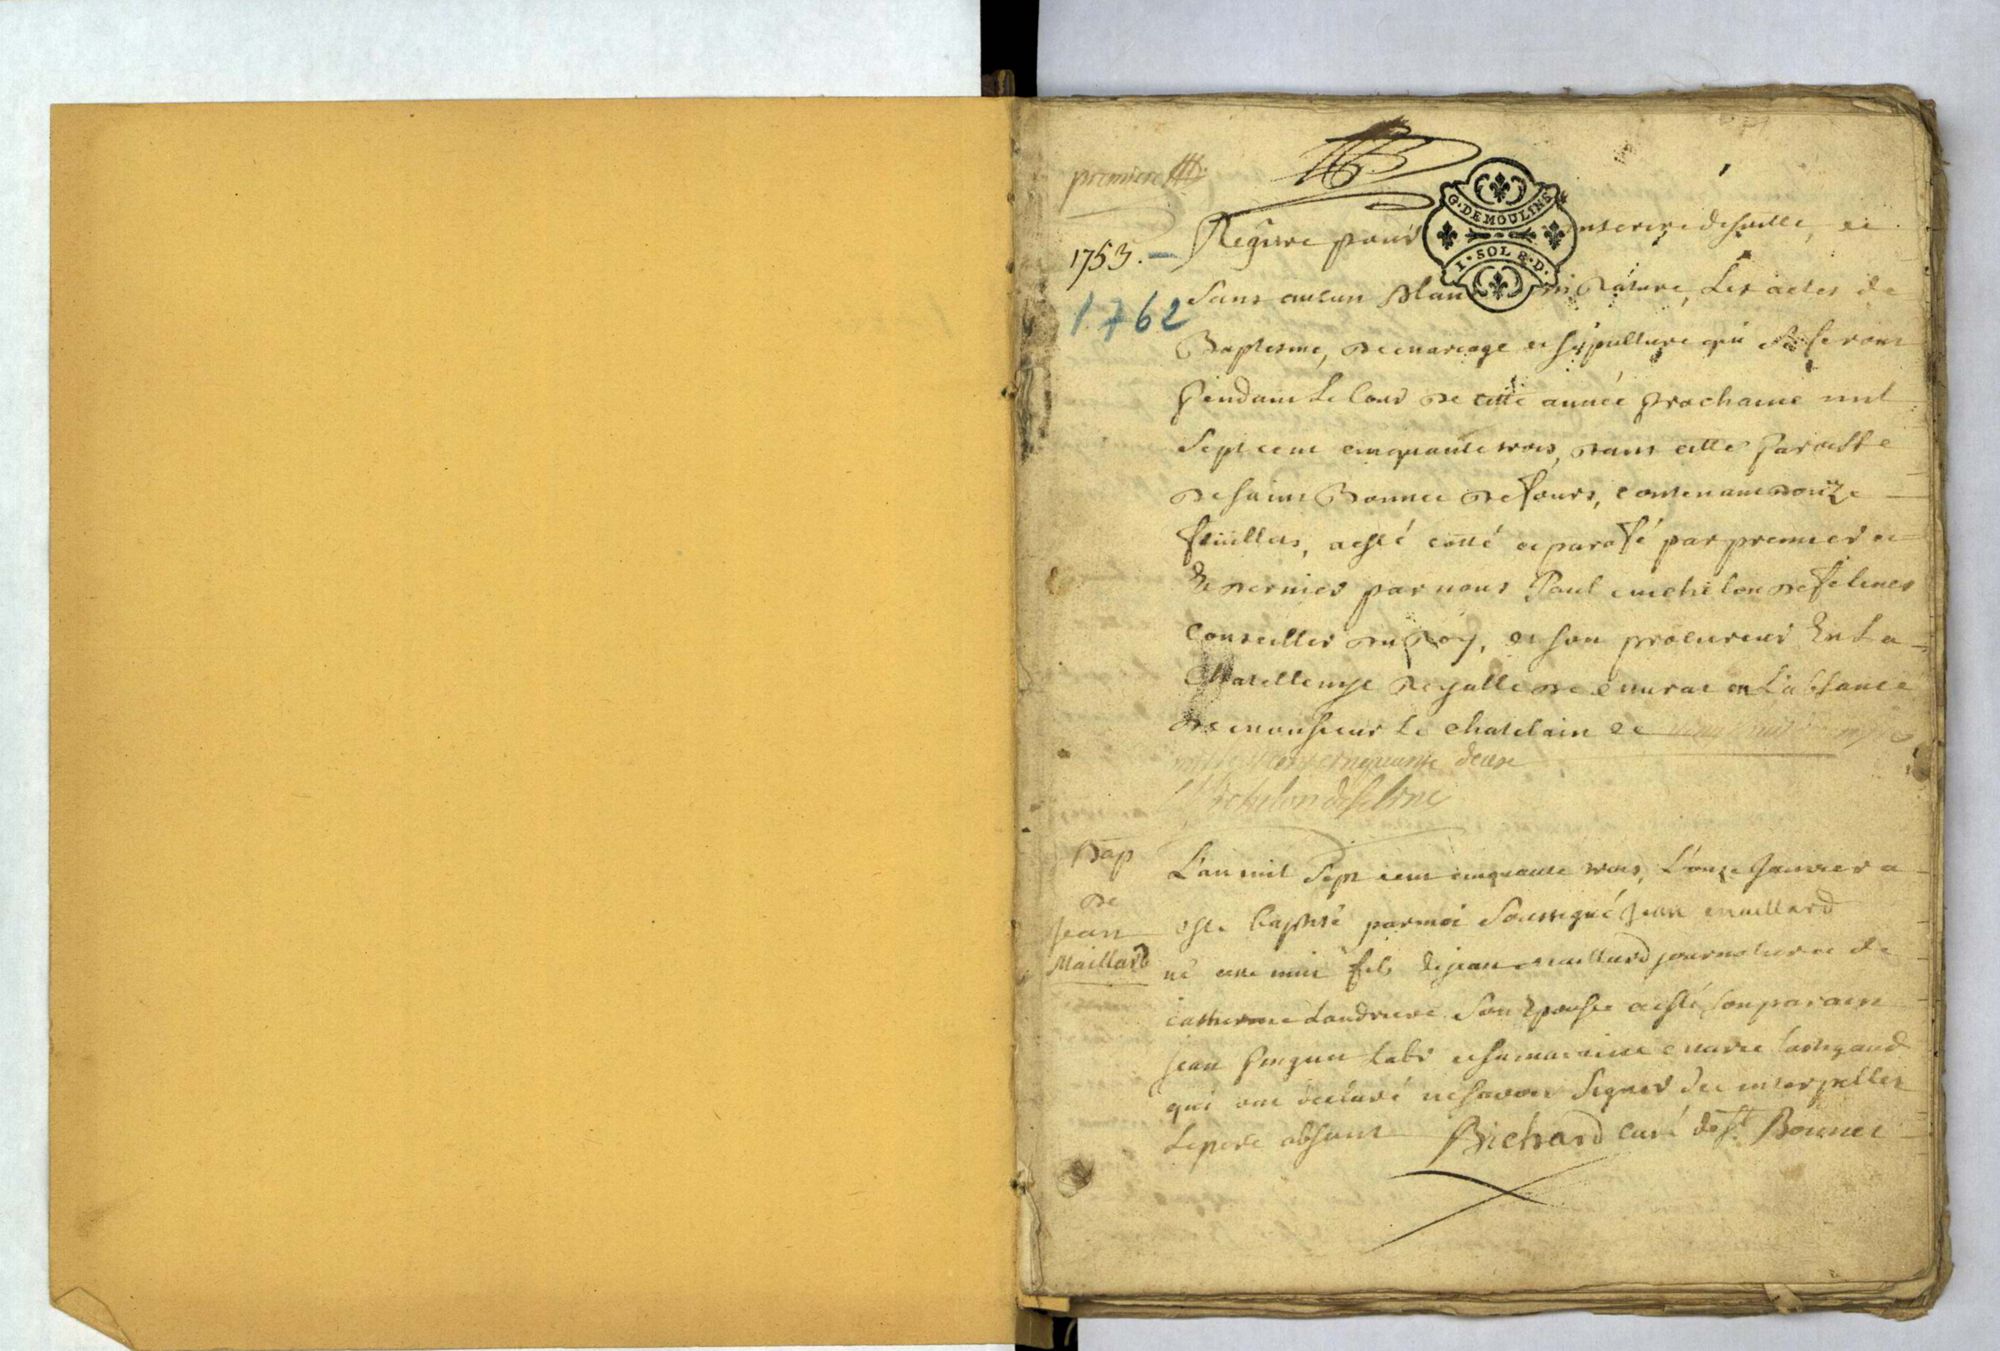 premiere
G. DE MOULINS
1. SOL 8. D.
1753. Regitre pour inscrire desuitte, et
1762
Sans aucun blanc ni Rature, Les actes de
Baptesme, de mariage et sepulture qui se feront
pendant Le Cour de cette année prochaine mil
Sept cent cinquante trois, dans cette Paroisse
de saint Bonnet de fours, contenant douze
feuillets, a esté cotté et parafé par premier et
dernier par nous Paul michelon de felines
Conseiller du Roy, et son procureur En La
Chatellenye Royalle de murat en L'absance
de monsieur Le chatelain ce
cent cinquante deux
Michelon de feline
Bap
de
Jean
Maillard
L'an mil Sept cent cinquante trois, L'onze Janvier a
esté baptisé par moi Soussigné Jean maillard
né fils de jean maillard journalier et de
catherine Landriere Son Epouse a esté son parain
jean Labr et sa maraine marie
qui ont declaré ne savoir Signer de ce interpellez
Le pere absent Bichard curé de St. Bonnet